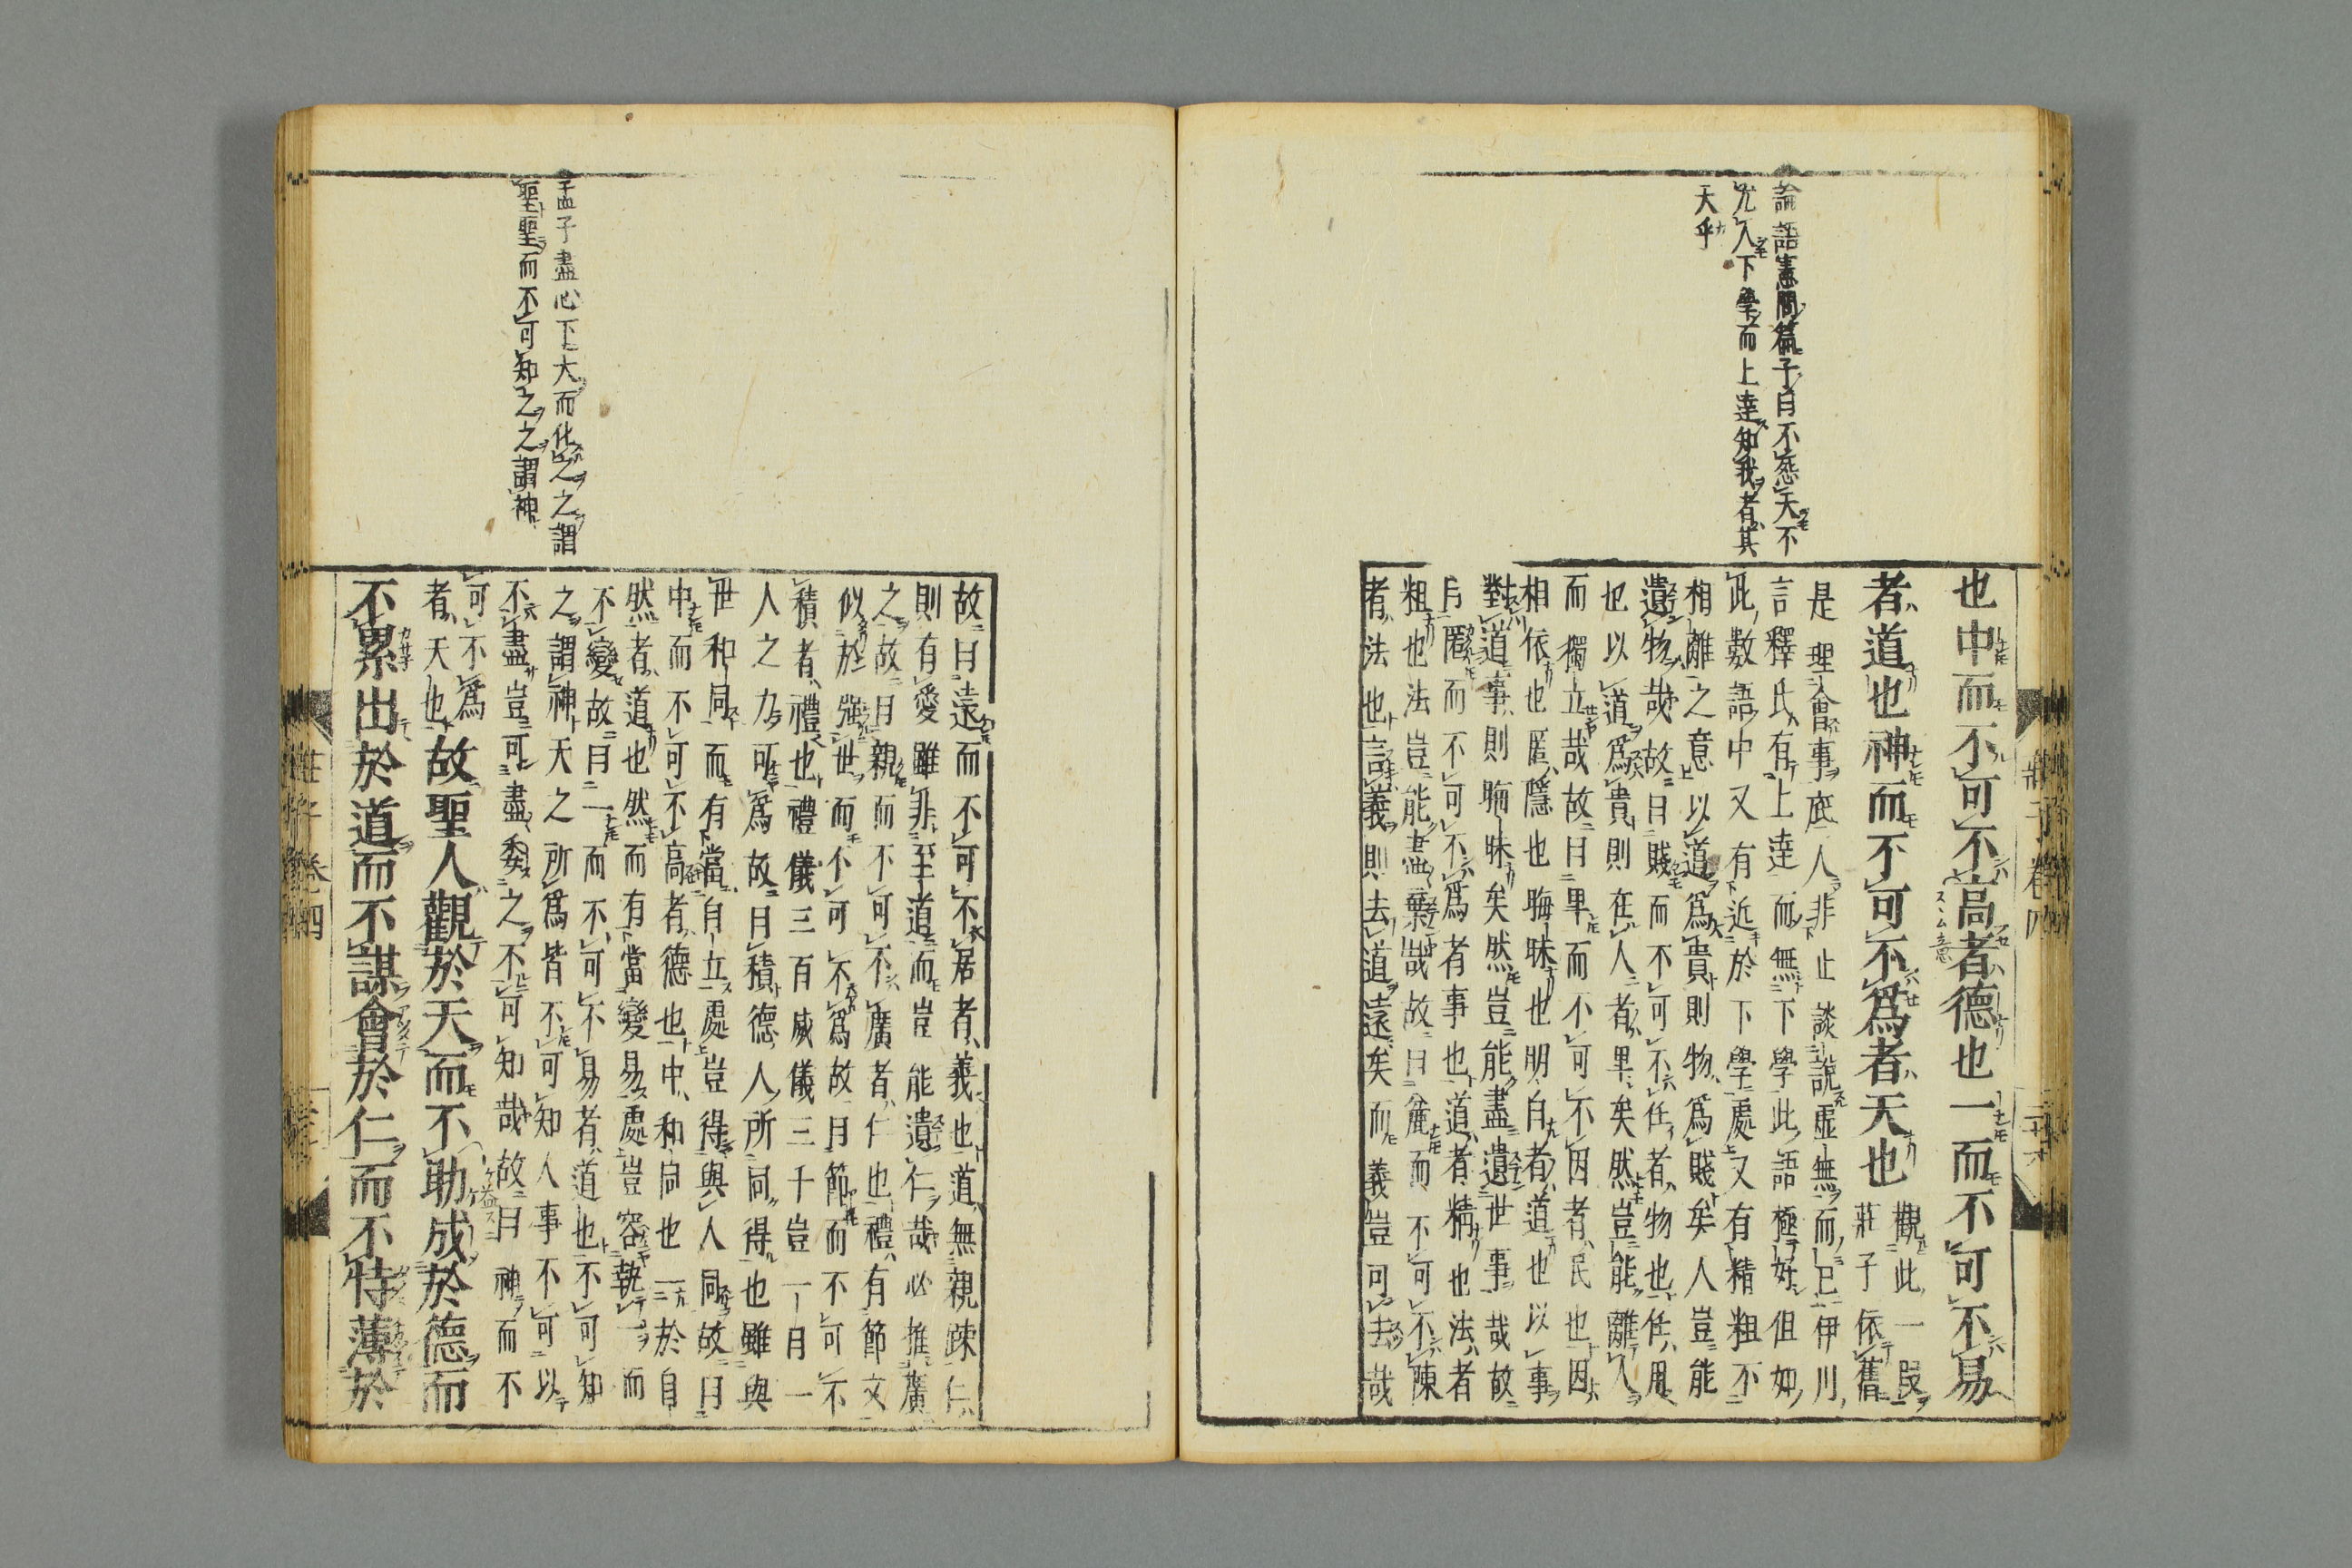 論語憲問篇子曰不怨天不
尤人下學而上達知我者其
天乎
也中而不可不高者德也一而不可不易
者道也神而不可不爲者天也
觀此一段
莊子依舊
是理會事底人非止談說虛無而已伊川
言釋氏有上達而無下學此語極好但如
此數語中又有近於下學處又有精粗不
相離之意以道爲貴則物爲賤矣人豈能
遺物哉故曰賤而不可不任者物也任用
也以道爲貴則在人者卑矣然豈能離人
而獨立哉故曰卑而不可不因者民也因
相依也匿隱也晦昧也明白者道也以事
對道事則晦昧矣然豈能盡遺世事哉故
曰匿而不可不爲者事也道者精也法者
粗也法豈能盡棄哉故曰麄而不可不陳
者法也言義則去道遠矣而義豈可去哉
莊子卷四
故曰遠而不可不居者義也道無親疎仁
則有愛雖非至道而豈能遺仁哉必推廣
之故曰親而不可不廣者仁也禮有節文
似於强世而不可不爲故曰節而不可不
積者禮也禮儀三百威儀三千豈一日一
人之力可爲故曰積德人所同得也雖與
世和同而有當自立處豈得與人同故曰
中而不可不高者德也中和同也一於自
然者道也然而有當變易處豈容執一而
不變故曰一而不可不易者道也不可知
之謂神天之所爲皆不可知人事不可以
不盡豈可盡委之不可知哉故曰神而不
可不爲
者天也故聖人觀於天而不助成於德而
不累出於道而不謀會於仁而不恃薄於
孟子盡心下大而化之之謂
聖聖而不可知之之謂神
莊子卷四